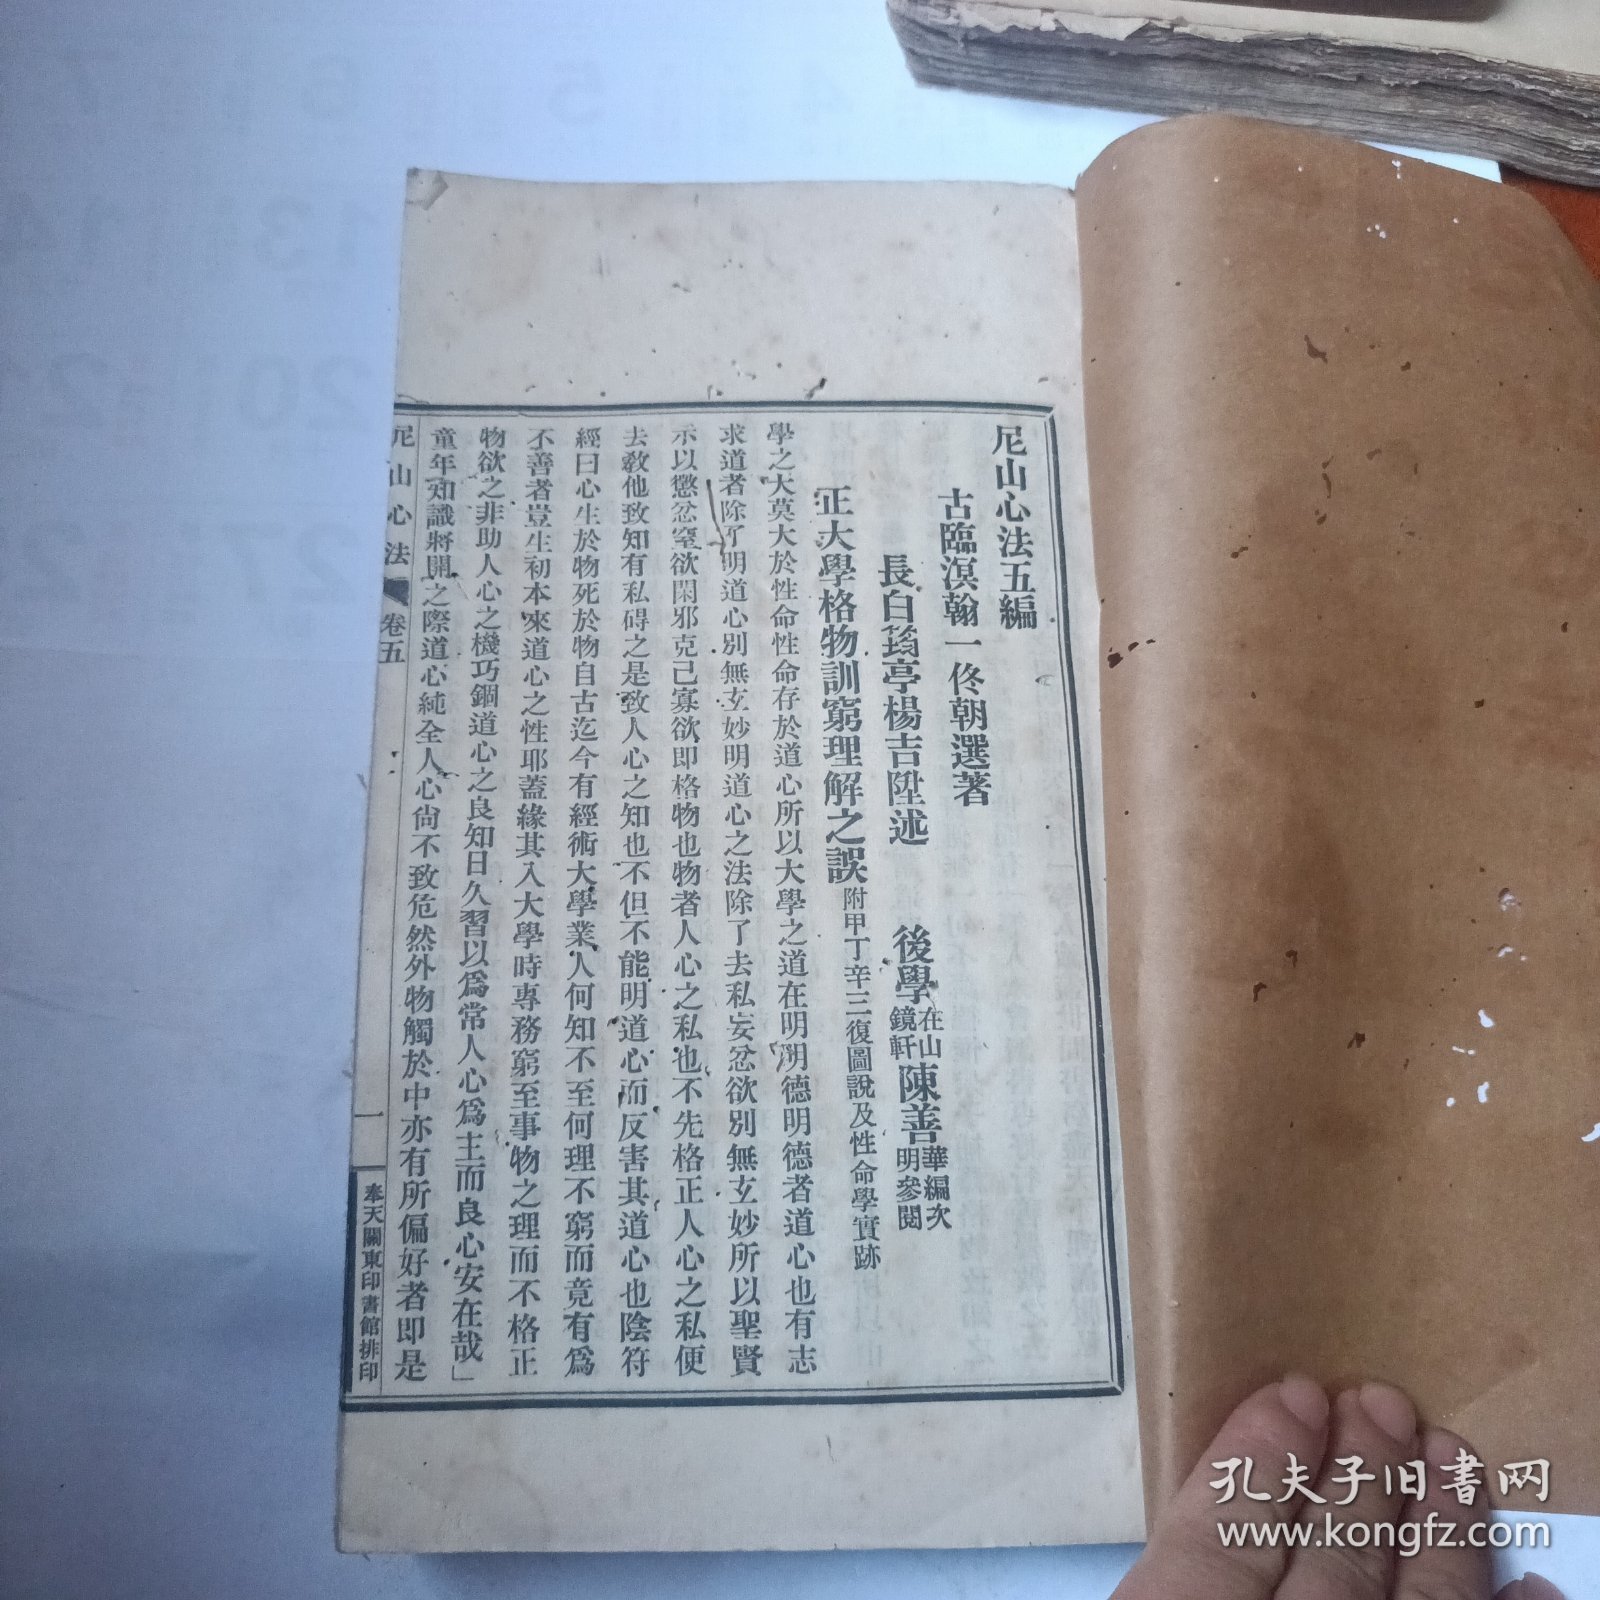 尼山心法五編
古臨溟翰一佟朝選著
長白筠亭楊吉陞述
後學在山陳善華編次
鏡軒明參閱
正大學格物訓窮理解之誤附甲丁辛三復圖說及性命學實跡
學之大莫大於性命性命存於道心所以大學之道在明明德明德者道心也有志
求道者除了明道心別無玄妙明道心之法除了去私妄忿欲別無玄妙所以聖賢
示以懲忿窒欲閑邪克己寡欲即格物也物者人心之私也不先格正人心之私便
去教他致知有私碍之是致人心之知也不但不能明道心而反害其道心也陰符
經曰心生於物死於物自古迄今有經術大學業人何知不至何理不窮而竟有為
不善者豈生初本來道心之性耶蓋緣其入大學時專務窮至事物之理而不格正
物欲之非助人心之機巧錮道心之良知日久習以爲常人心爲主而良心安在哉」
童年知識將開之際道心純全人心尙不致危然外物觸於中亦有所偏好者即是
尼山心法 卷五 一 奉天關東印書館排印
孔夫子旧书网
www.kongfz.com